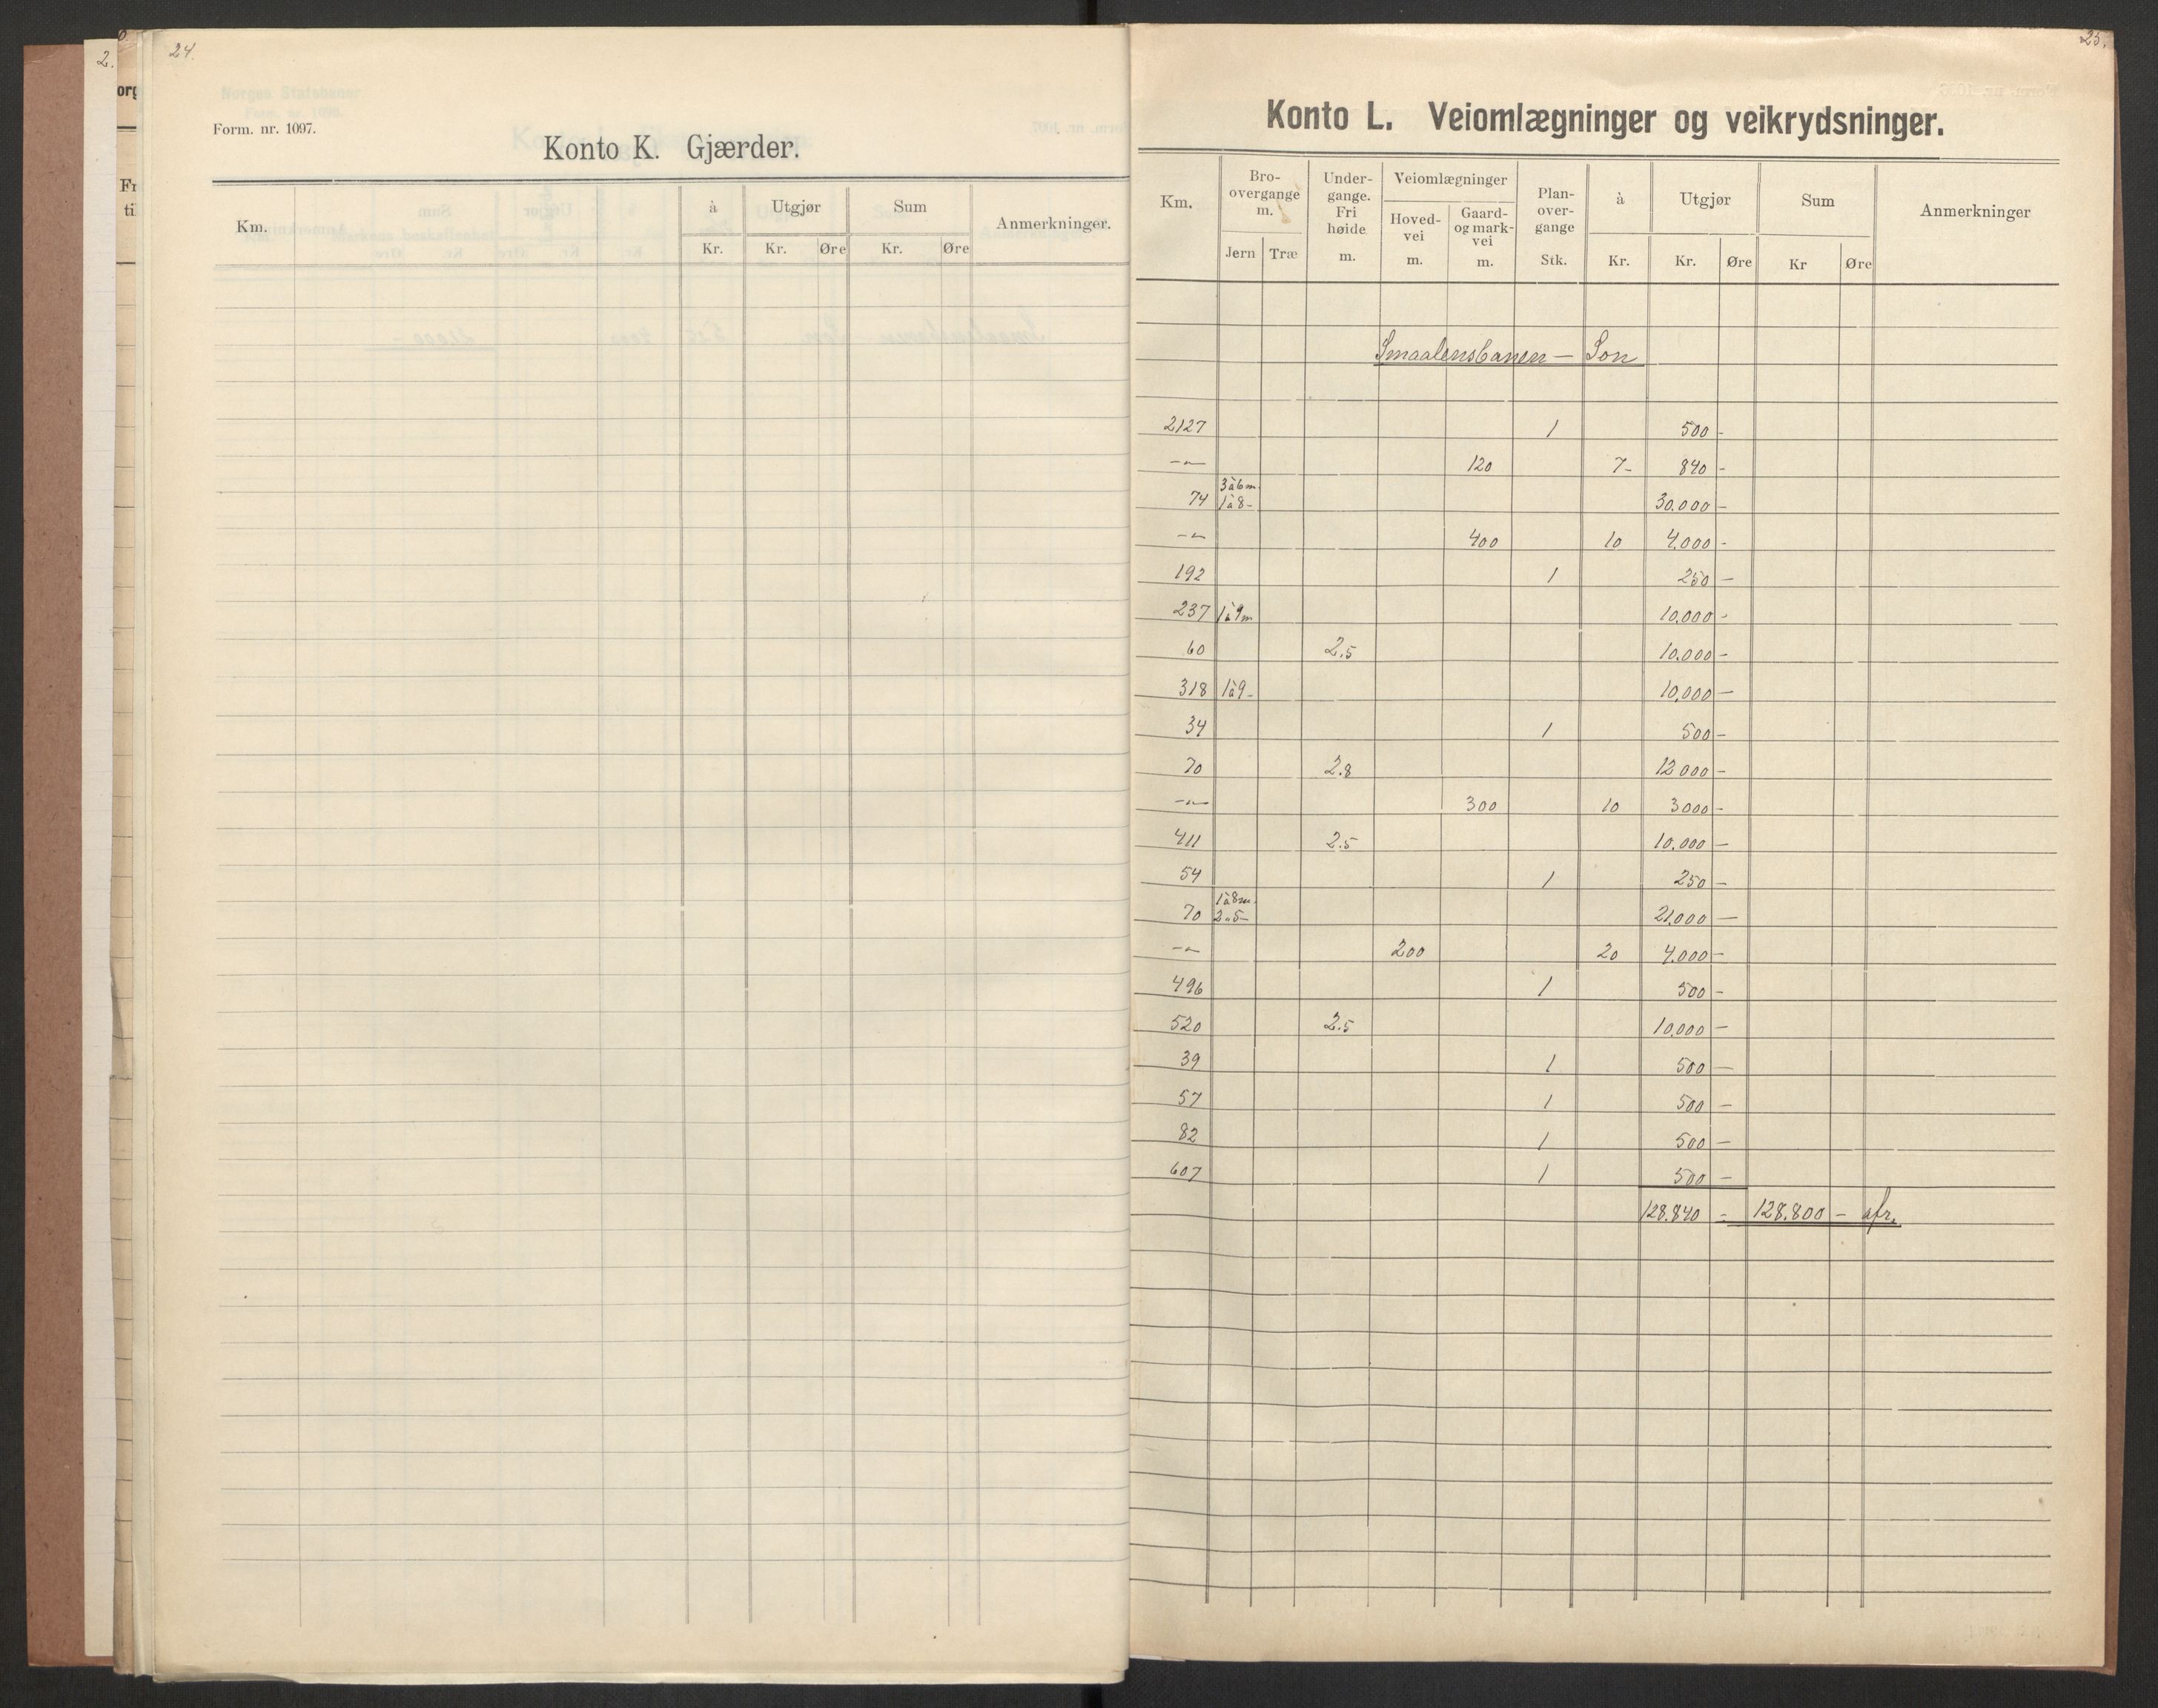 24.
Form. nr. 1097.
Konto K. Gjærder.
Km. à Utgjør Sum Anmerkninger.
Kr. Kr. Øre Kr. Øre
2.
org
Fr
til
25.
Konto L. Veiomlægninger og veikrydsninger.
Km. Bro-overgange m. Under-gange. Fri høide m. Veiomlægninger Plan-over-gange Stk. à Utgjør Sum Anmerkninger
Jern Træ Hoved-vei m. Gaard-og mark-vei m. Kr. Kr. Øre Kr Øre
Smaalensbanen — Son
2127 1 500 -
-"- 120 7- 840 -
74 3 à 6 m. 1 à 8 - 30.000 -
-"- 400 10 4.000 -
192 1 250 -
237 1 à 9 m 10.000 -
60 2.5 10.000 -
318 1 à 9 - 10.000 -
34 1 500 -
70 2.8 12000 -
-"- 300 10 3000 -
411 2.5 10.000 -
54 1 250 -
70 1 à 8 m. 2 " 5 - 21.000 -
-"- 200 20 4.000 -
496 1 500 -
520 2.5 10.000 -
39 1 500 -
57 1 500 -
82 1 500 -
607 1 500 -
128.840 - 128.800 - afr.